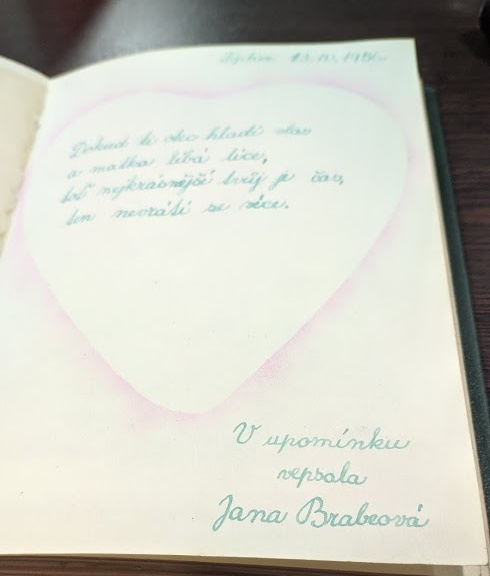 13. IV. 1951.
Dokud ti otec hladí vlas
a matka líbá líce,
toť nejkrásnější tvůj je čas,
ten nevrátí se více.
V upomínku
vepsala
Jana Brabcová